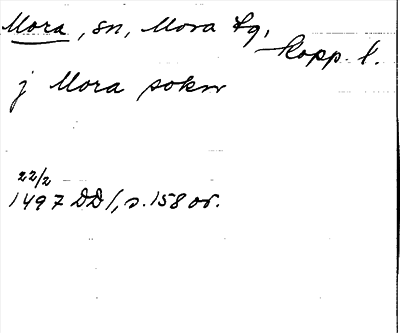 Mora, sn, Mora tg, Kopp. l.
j Mora sokn
22/2
1497 DD 1, s. 158 or.